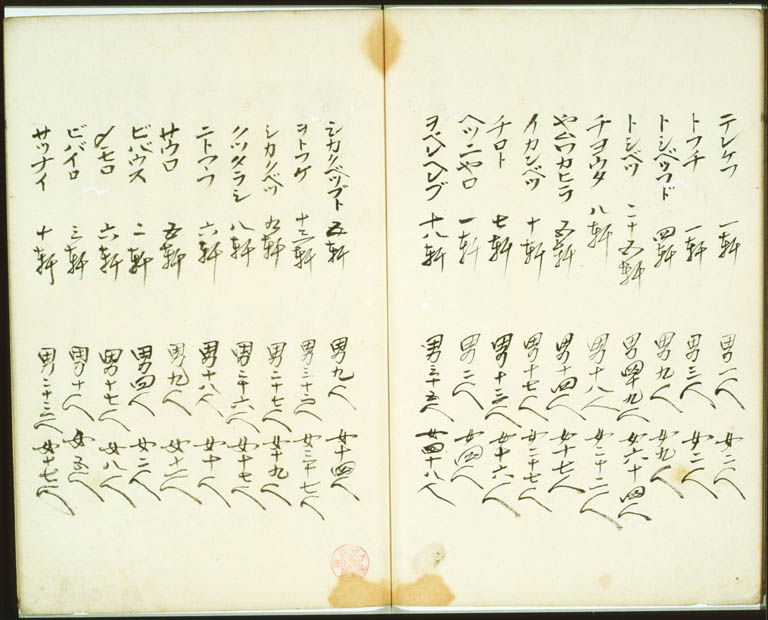 テレケフ 一軒 男一人 女二人
トフチ 一軒 男三人 女二人
トシベツフド 四軒 男九人 女九人
トシベツ 二十五軒 男四十九人 女六十四人
チヨウタ 八軒 男十八人 女二十二人
ヤムワカヒラ 五軒 男十四人 女十七人
イカンベツ 十軒 男十七人 女二十七人
チロト 七軒 男十三人 女十六人
ヘツニヤロ 一軒 男二人 女四人
ヲベレヘレブ 十八軒 男三十五人 女四十八人
シカリベツブト 五軒 男九人 女十四人
ヲトフケ 十三軒 男三十六人 女三十七人
シカリベツ 九軒 男二十七人 女十九人
クツタラシ 八軒 男二十六人 女十七人
ニトマフ 六軒 男十八人 女十人
サウロ 五軒 男九人 女十二人
ビバウス 二軒 男四人 女二人
メモロ 六軒 男十七人 女八人
ビバイロ 三軒 男十人 女五人
サツナイ 十軒 男二十三人 女十七人